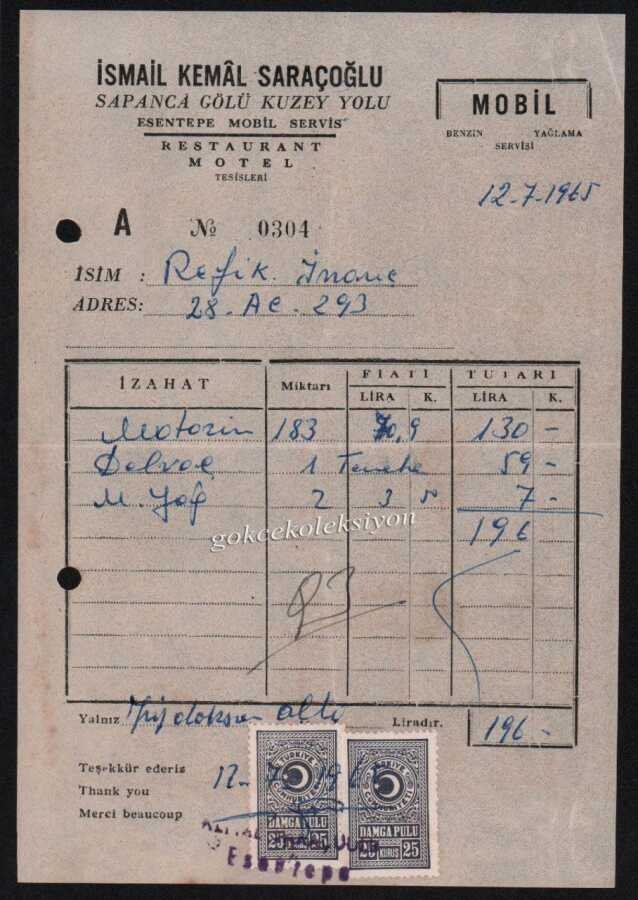 İSMAİL KEMÂL SARAÇOĞLU
SAPANCA GÖLÜ KUZEY YOLU
ESENTEPE MOBİL SERVİS
RESTAURANT
MOTEL
TESİSLERİ
MOBİL
BENZİN YAĞLAMA
SERVİSİ
12-7-1965
A № 0304
İSİM : Refik. İnanç
ADRES: 28-AC-293
İZAHAT Miktarı FİATİ TUTARI
LİRA K. LİRA K.
Motorin 183 130 -
Delvac 1 Teneke 59 -
M. Yağ 2 3 7 -
196
gokcekoleksiyon
Yalnız altı Liradır. 196 -
Teşekkür ederiz
Thank you
Merci beaucoup
12-7-1965
TÜRKİYE CUMHURİYETİ
DAMGA PULU
25 25
TÜRKİYE CUMHURİYETİ
DAMGA PULU
25 KURUŞ 25
Esentepe